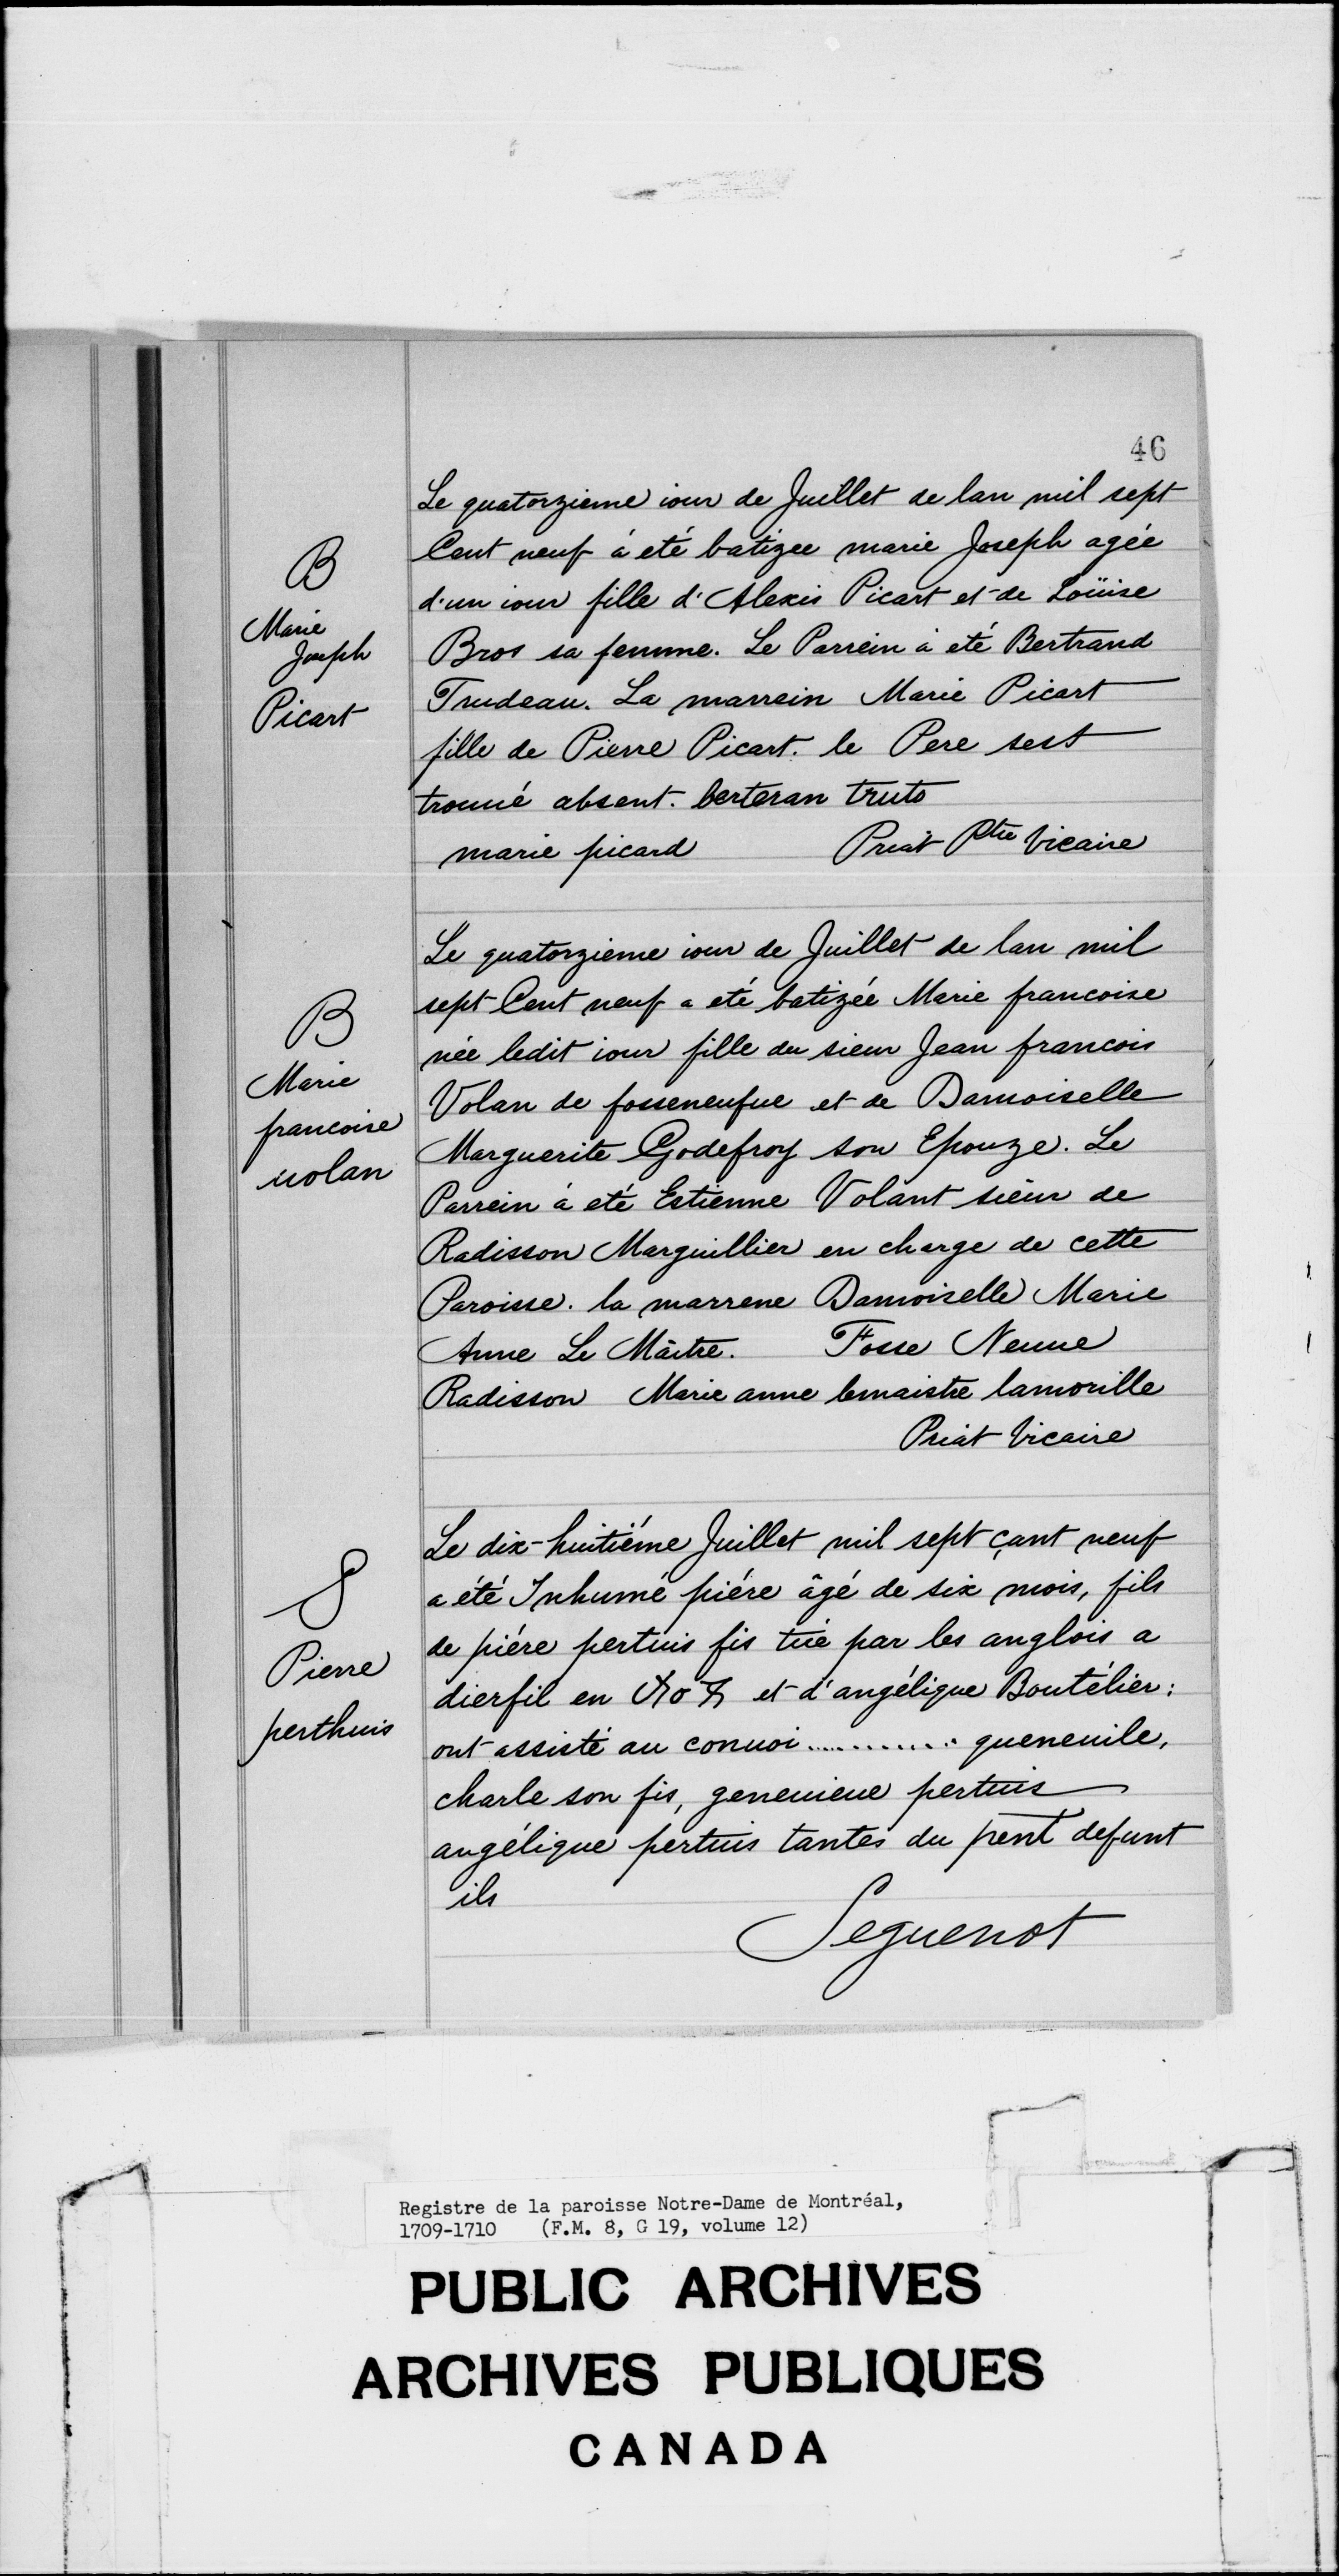 46
Le quatorzieme iour de Juillet de lan mil sept
Cent neuf á eté batizee marie Joseph agée
d'un iour fille d'Alexis Picart et de Loüise
Bros sa femme. Le Parrein à eté Bertrand
Trudeau. La marrein Marie Picart
fille de Pierre Picart. le Pere sest
trouué absent. berteran truto
marie picard Priat Ptre Vicaire
B
Marie
Joseph
Picart
Le quatorzieme iour de Juillet de lan mil
sept Cent neuf a eté batizée Marie francoise
née ledit iour fille du sieur Jean francois
Volan de fosseneufue et de Damoiselle
Marguerite Godefroy son Epouze. Le
Parrein á eté Estienne Volant sieur de
Radisson Marguillier en charge de cette
Paroisse. la marrene Damoiselle Marie
Anne Le Maitre. Fosse Neuue
Radisson Marie anne lemaistre lamorille
Priat Vicaire
B
Marie
francoise
uolan
Le dix-huitiéme Juillet mil sept çant neuf
a été Inhumé piére âgé de six mois, fils
de piére pertuis fis tué par les anglois a
dierfil en et d'angélique Boutélier:
ont assisté au conuoi ............ queneuile,
charle son fis, geneuieue pertuis
angélique pertuis tantes du pent defunt
ils
Seguenot
S
Pierre
perthuis
Registre de la paroisse Notre-Dame de Montréal,
1709-1710 (F.M. 8, G 19, volume 12)
PUBLIC ARCHIVES
ARCHIVES PUBLIQUES
CANADA